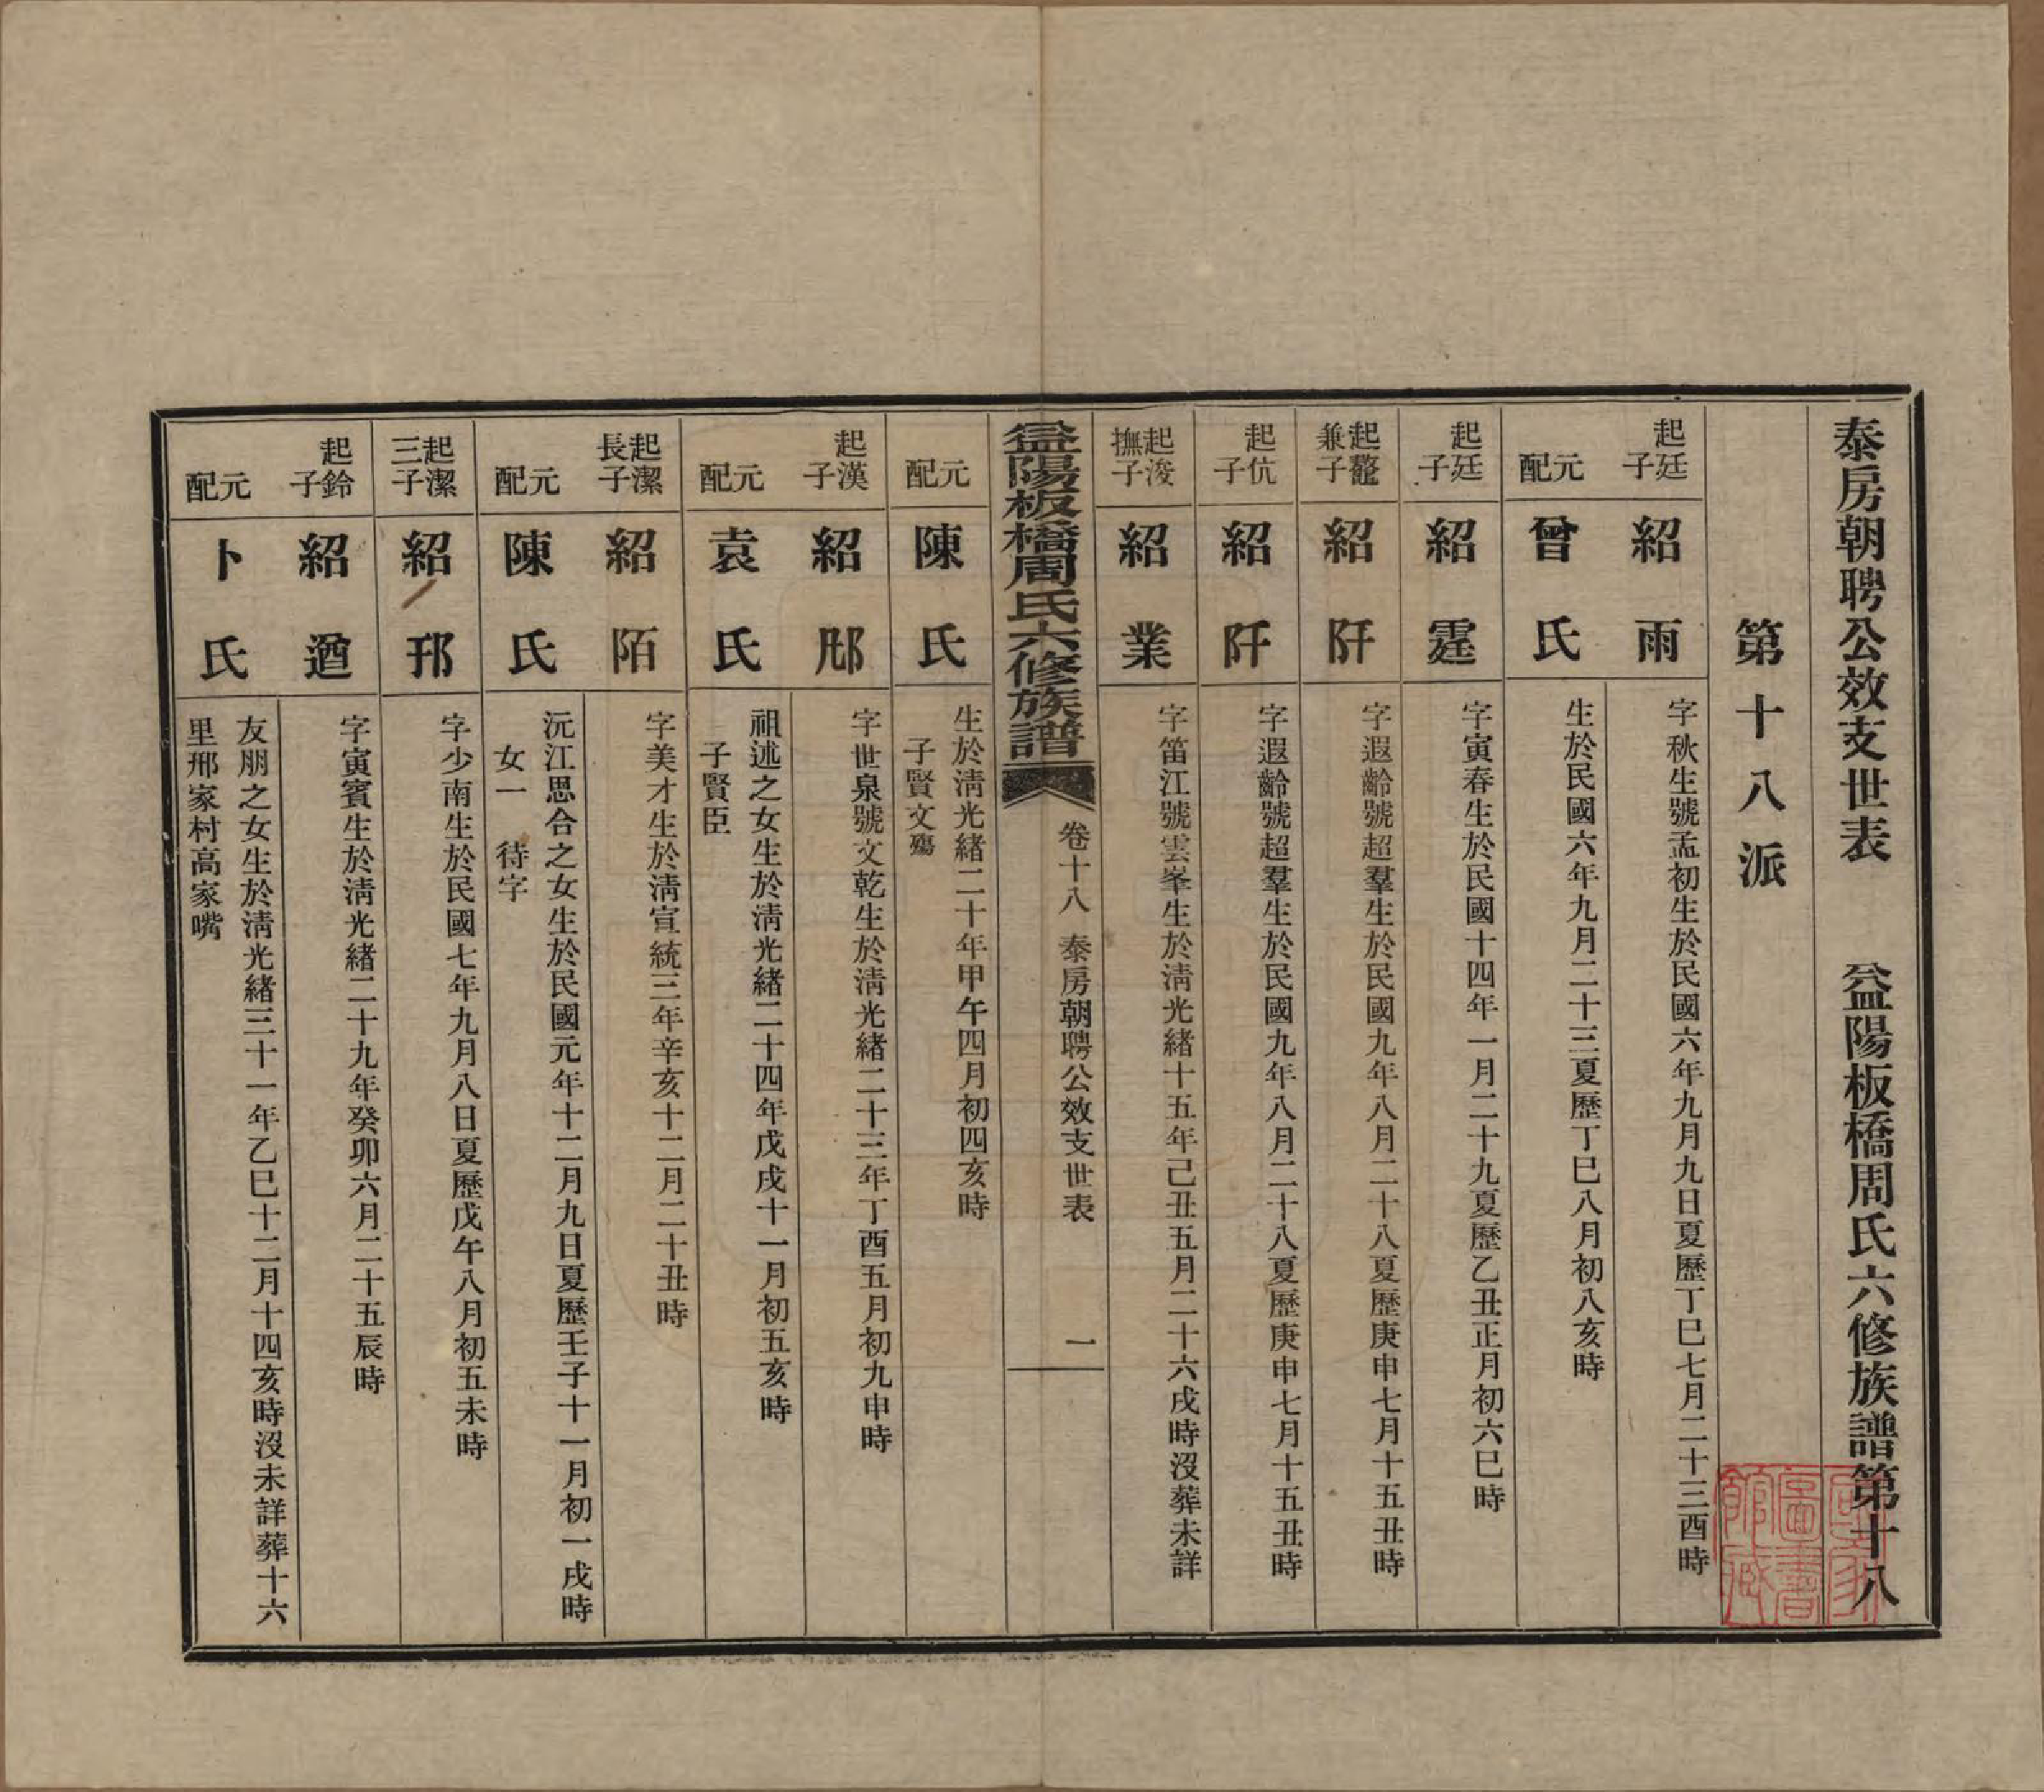 泰房朝聘公效支世表 益陽板橋周氏六修族譜第十八
第十八派
起廷子 紹雨 字秋生號孟初生於民國六年九月九日夏歷丁巳七月二十三酉時
元配 曾氏 生於民國六年九月二十三夏歷丁巳八月初八亥時
起廷子 紹霆 字寅春生於民國十四年一月二十九夏歷乙丑正月初六巳時
起鼇兼子 紹阡 字遐齡號超羣生於民國九年八月二十八夏歷庚申七月十五丑時
起伉子 紹阡 字遐齡號超羣生於民國九年八月二十八夏歷庚申七月十五丑時
起浚撫子 紹業 字笛江號雲峯生於淸光緒十五年己丑五月二十六戌時沒葬未詳
益陽板橋周氏六修族譜 卷十八 泰房朝聘公效支世表 一
元配 陳氏 生於淸光緒二十年甲午四月初四亥時
子賢文殤
起漢子 紹郕 字世泉號文乾生於淸光緒二十三年丁酉五月初九申時
元配 袁氏 祖述之女生於淸光緒二十四年戊戌十一月初五亥時
子賢臣
起潔長子 紹陌 字美才生於淸宣統三年辛亥十二月二十丑時
元配 陳氏 沅江思合之女生於民國元年十二月九日夏歷壬子十一月初一戌時
女一 待字
起潔三子 紹邘 字少南生於民國七年九月八日夏歷戊午八月初五未時
起鈴子 紹遒 字寅賓生於淸光緒二十九年癸卯六月二十五辰時
元配 卜氏 友朋之女生於淸光緒三十一年乙巳十二月十四亥時沒未詳葬十六
里邢家村高家嘴